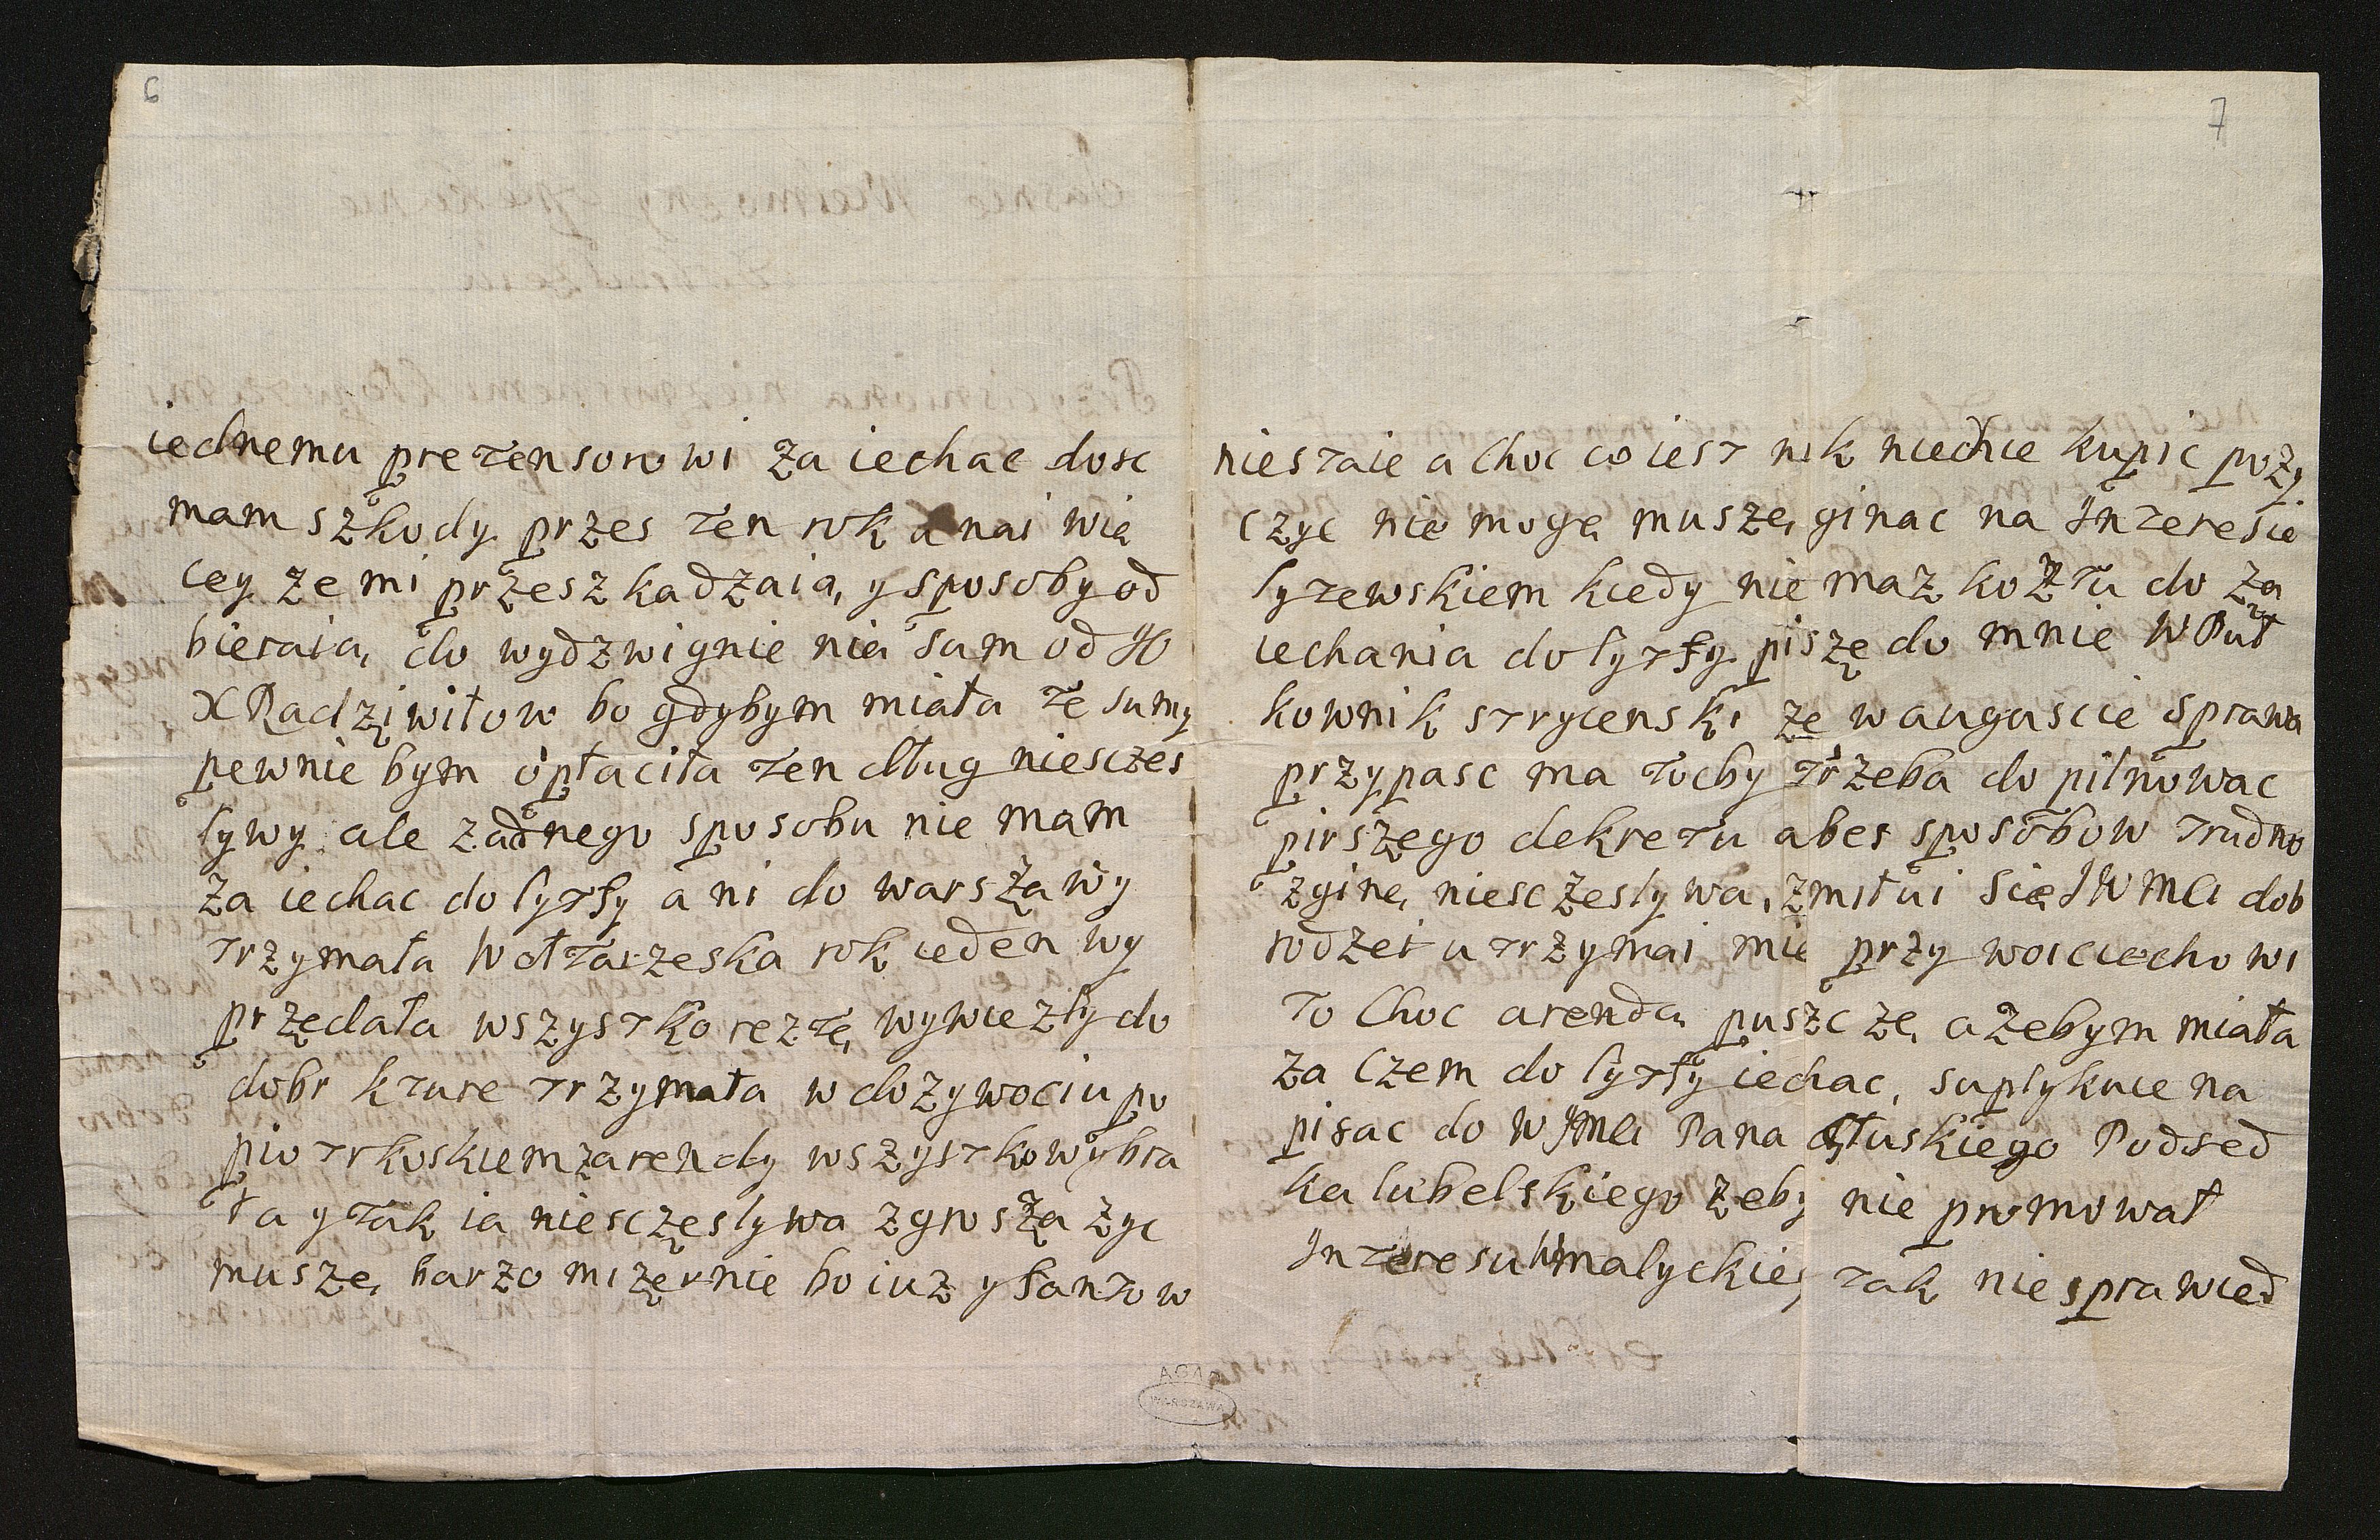 6
iednemu pretensorowi zaiechac dosc
mam szkody przes ten rok a nai wię
cey ze mi przeszkadzaią, y sposoby od
bieraią, do wydzwignienia sum od JO
X Radziwiłow bo gdybym miała te sumy
pewnie bym opłaciła ten dług niesczes
lywy ale zadnego sposobu nie mam
zaiechac do lytfy ani do warszawy
trzymała rok ieden wy
przedała wszystko resztę, wywiezly do
dobr kture trzymała w dozywociu po
piotrkoskiem zarendy wszystko wybra
ła y tak ia niesczęslywa zgrosza zyc
muszę, barzo mizernie bo iuz y fantow
7
niestaie a choc co iest nik niechce kupic pozy
czyc nie mogę muszę, ginac na Interesie
lytewskiem kiedy niemaz kosztu do za
iechania do lytfy piszę do mnie W Puł
kownik stryienski ze w auguscie sprawa
przypasc ma tocby trzeba do pilnowac
pirszego dekretu abes sposobow trudno
zginę, niesczeslywa, zmiłui się JWMCi dob
rodzei utrzymai mie przy woiciechowi
to choc arendą puszczę, a zebym miała
za czem do lytfy iechac, suplykuie na
pisac do WJMCi Pana Głuskiego Podsęd
ka lubelskiego zeby nie promował
Interesu malyckiey tak niesprawied
AGAD
WARSZAWA